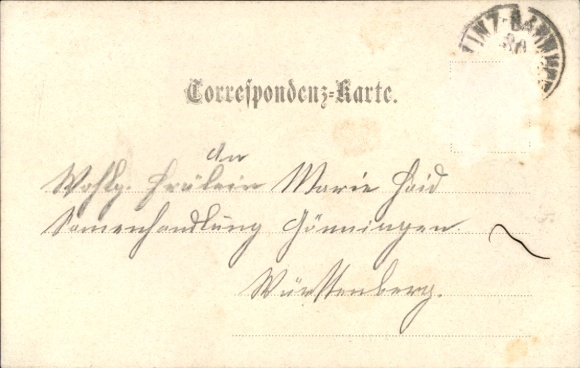 LINZ-BAHNHOF
80
Correspondenz-Karte.
An
Wohlg. Fräulein Marie Haid
Samenhandlung Gönningen.
Württenberg.